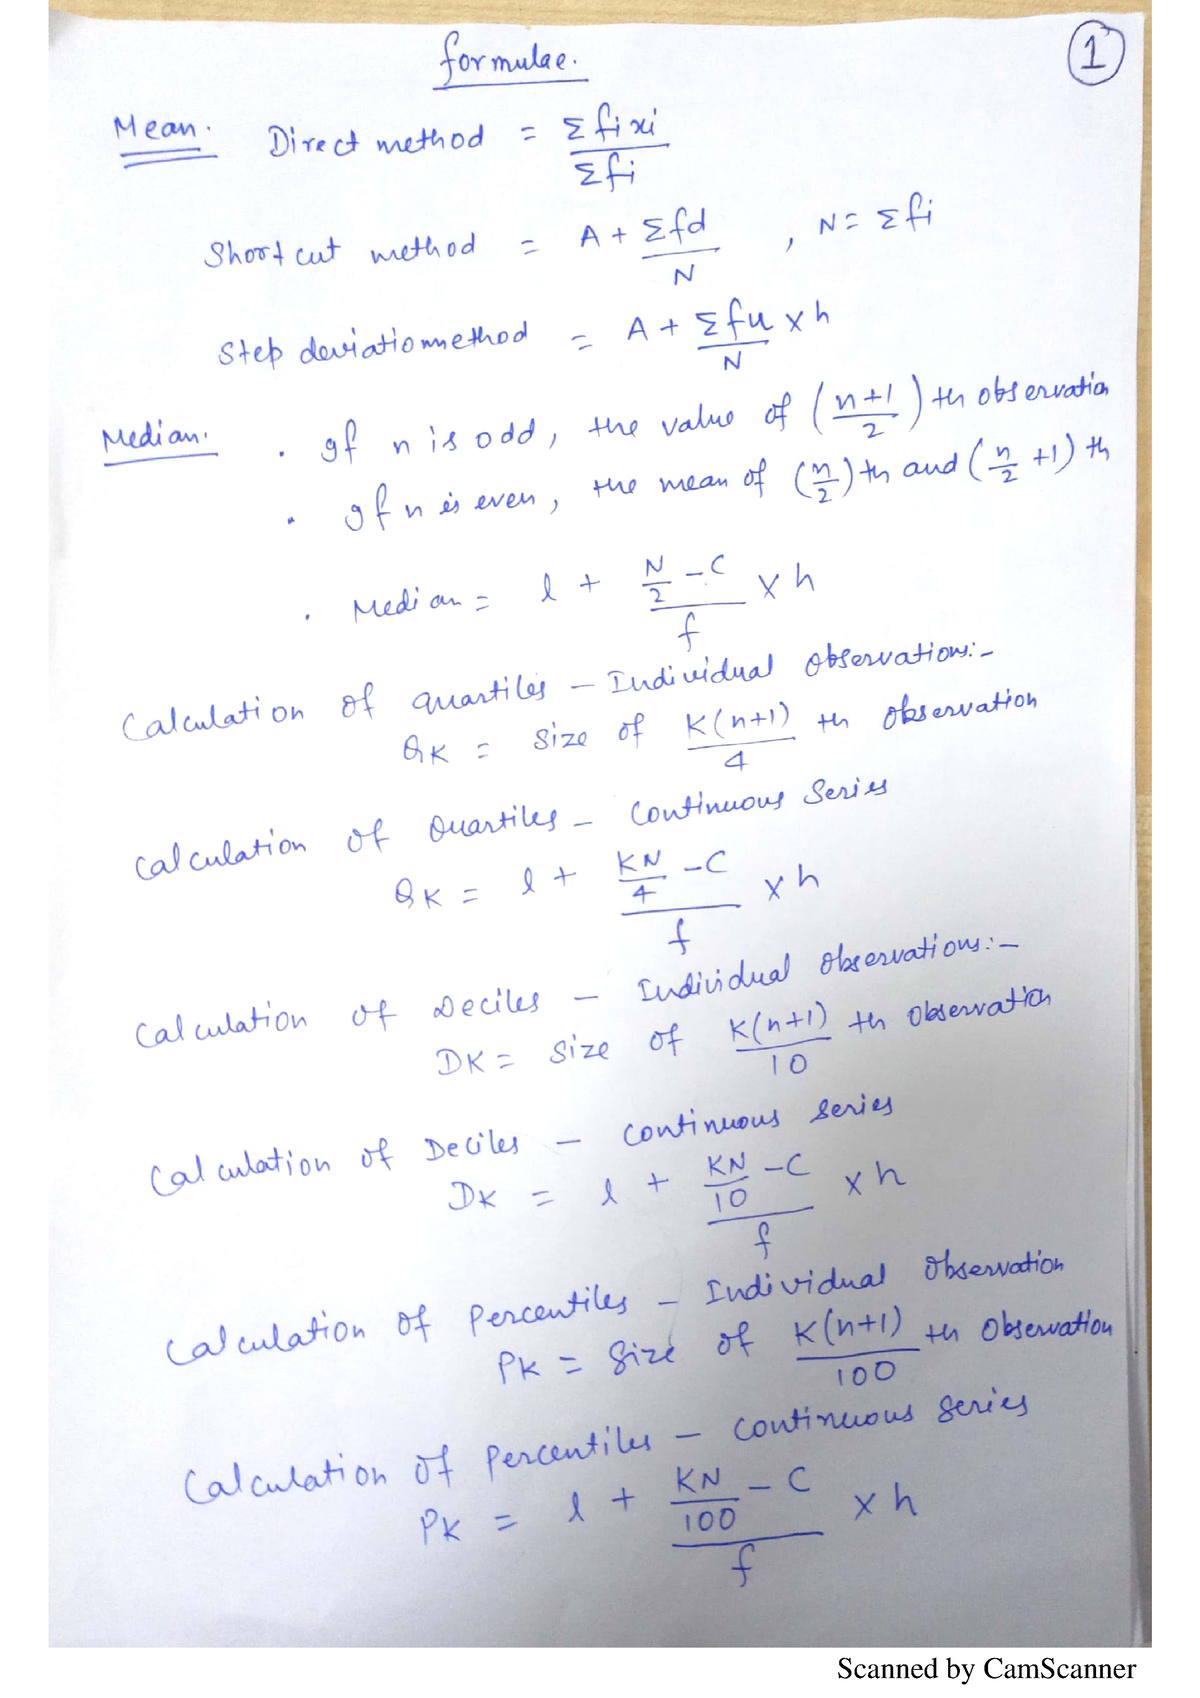 formulae.
1
Mean. Direct method = Σfixi / Σfi
Shortcut method = A + Σfd / N , N = Σfi
Step deviationmethod = A + Σfu / N × h
Median. • If n is odd, the value of (n+1 / 2) th observation
• If n is even, the mean of (n/2) th and (n/2 +1) th
• Median = l + (N/2 - C) / f × h
Calculation of quartiles – Individual observations:-
QK = size of K(n+1) / 4 th observation
Calculation of Quartiles – Continuous Series
QK = l + (KN/4 - C) / f × h
Calculation of Deciles – Individual observations:-
DK = size of K(n+1) / 10 th observation
Calculation of Deciles – Continuous series
DK = l + (KN/10 - C) / f × h
Calculation of Percentiles – Individual Observation
PK = Size of K(n+1) / 100 th Observation
Calculation of Percentiles – Continuous series
PK = l + (KN/100 - C) / f × h
Scanned by CamScanner